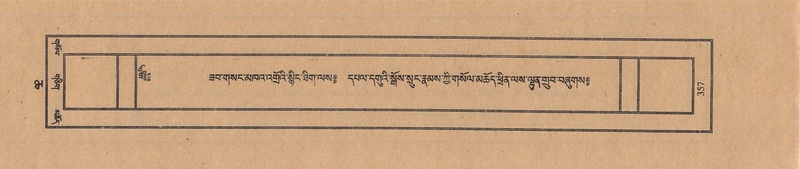 ཟབ་གསང་མཁའ་འགྲོའི་སྙིང་ཐིག་ལས༔ དཔལ་དགུའི་སྒོས་སྲུང་རྣམས་ཀྱི་གསོལ་མཆོད་ཕྲིན་ལས་ལྷུན་གྲུབ་བཞུགས༔
གཅིག
357